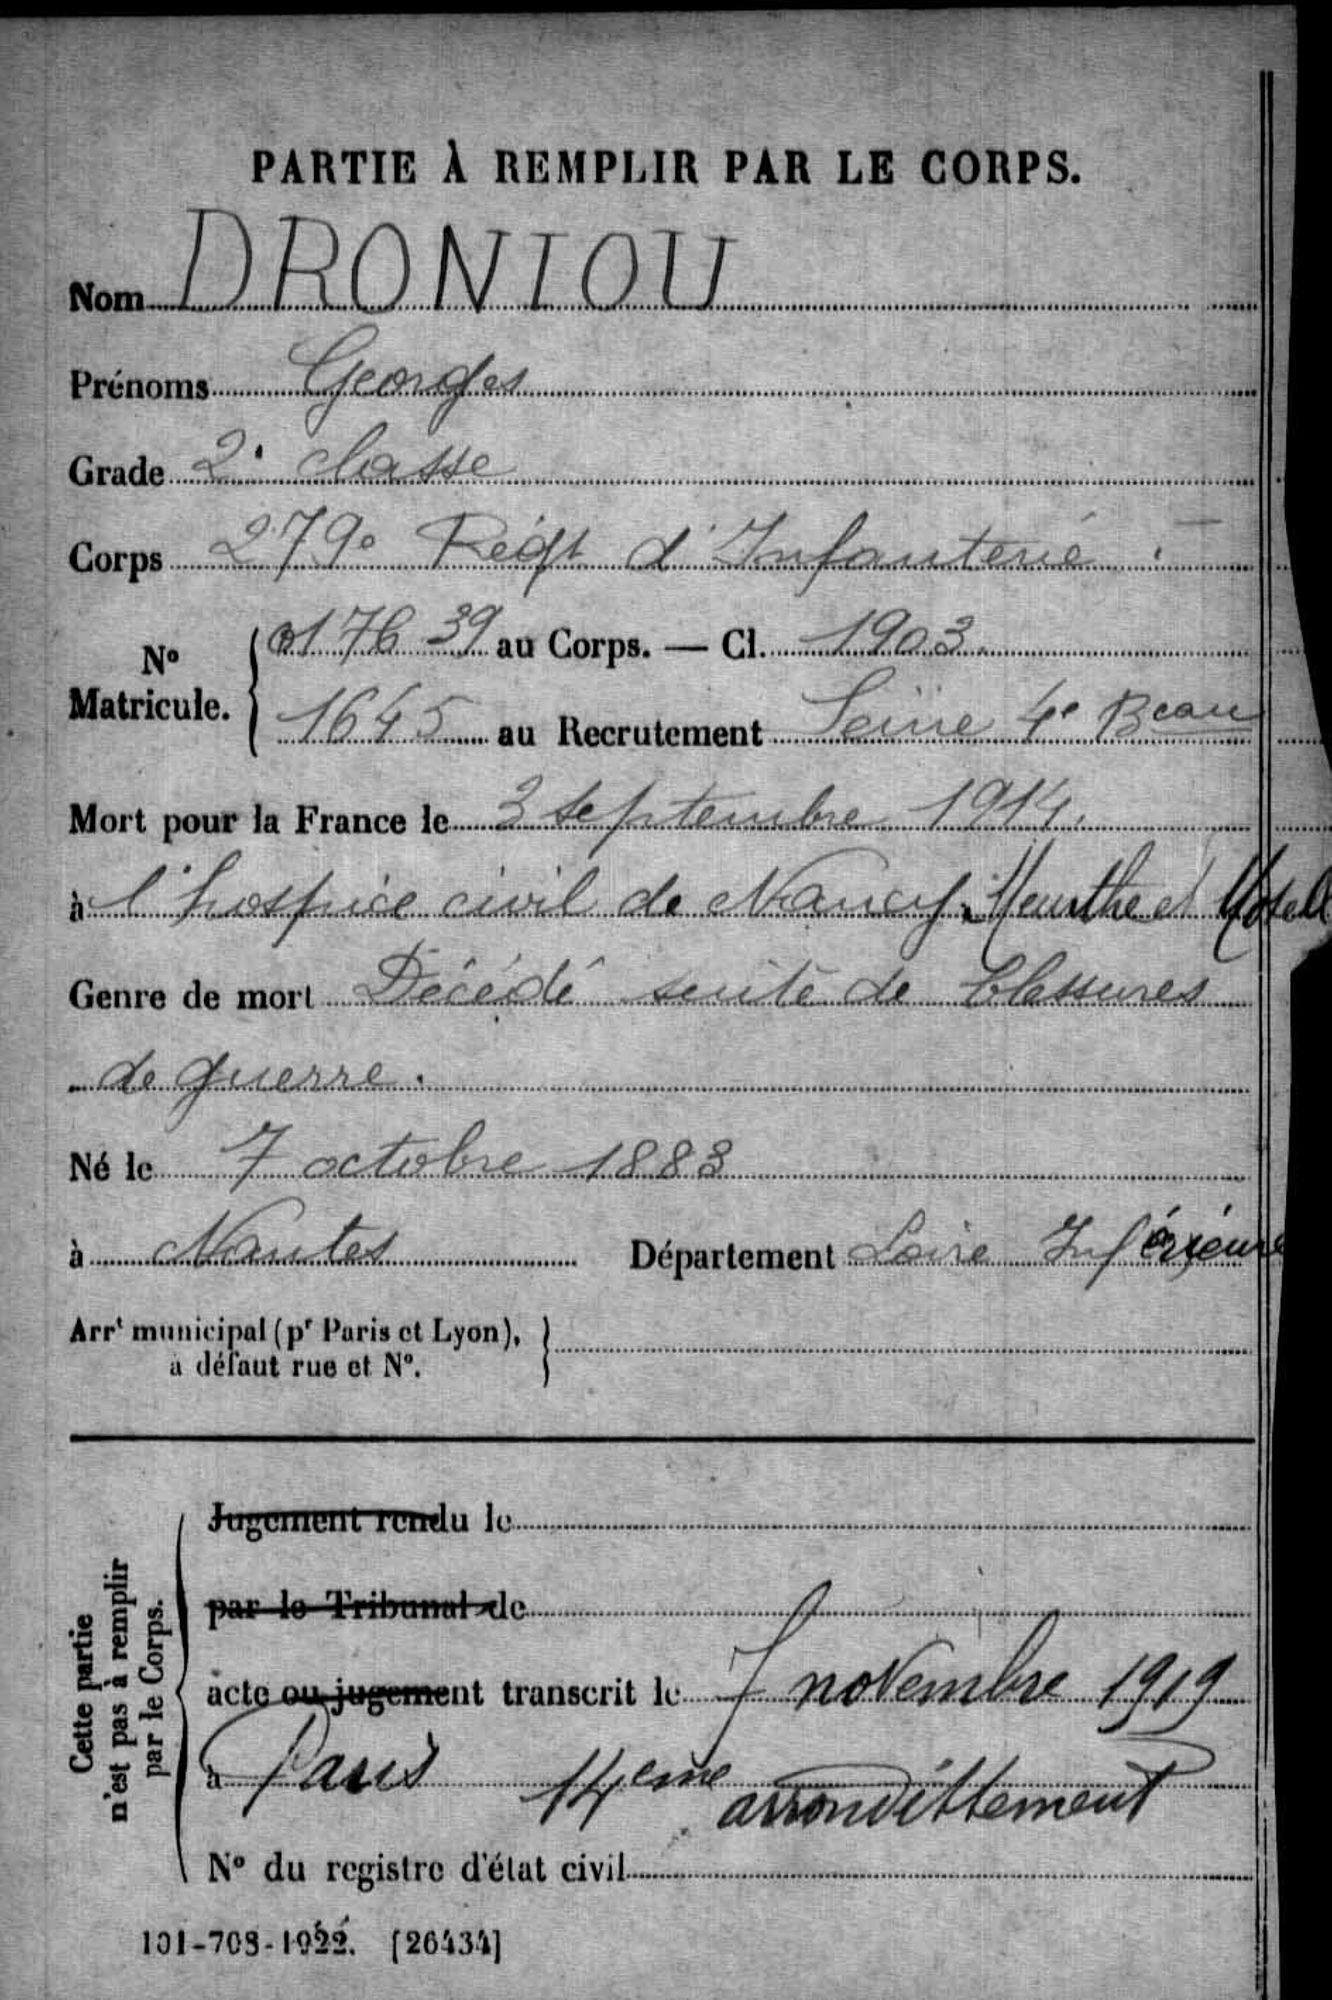 PARTIE À REMPLIR PAR LE CORPS.
Nom DRONIOU
Prénoms Georges
Grade 2e classe
Corps 279e Régt d'Infanterie
N° Matricule. 017639 au Corps. — Cl. 1903.
1645 au Recrutement Seine 4e Beau
Mort pour la France le 3 septembre 1914.
à l'hospice civil de Nancy, Meurthe et Mosell
Genre de mort Décédé suite de blessures
de guerre.
Né le 7 octobre 1883
à Nantes Département Loire Inférieure
Arrt municipal (pr Paris et Lyon),
à défaut rue et N°.
Cette partie
n'est pas à remplir
par le Corps.
Jugement rendu le
par le Tribunal de
acte ou jugement transcrit le 7 novembre 1919
à Paris 14eme arrondissement
N° du registre d'état civil
101-708-1922. [26434]